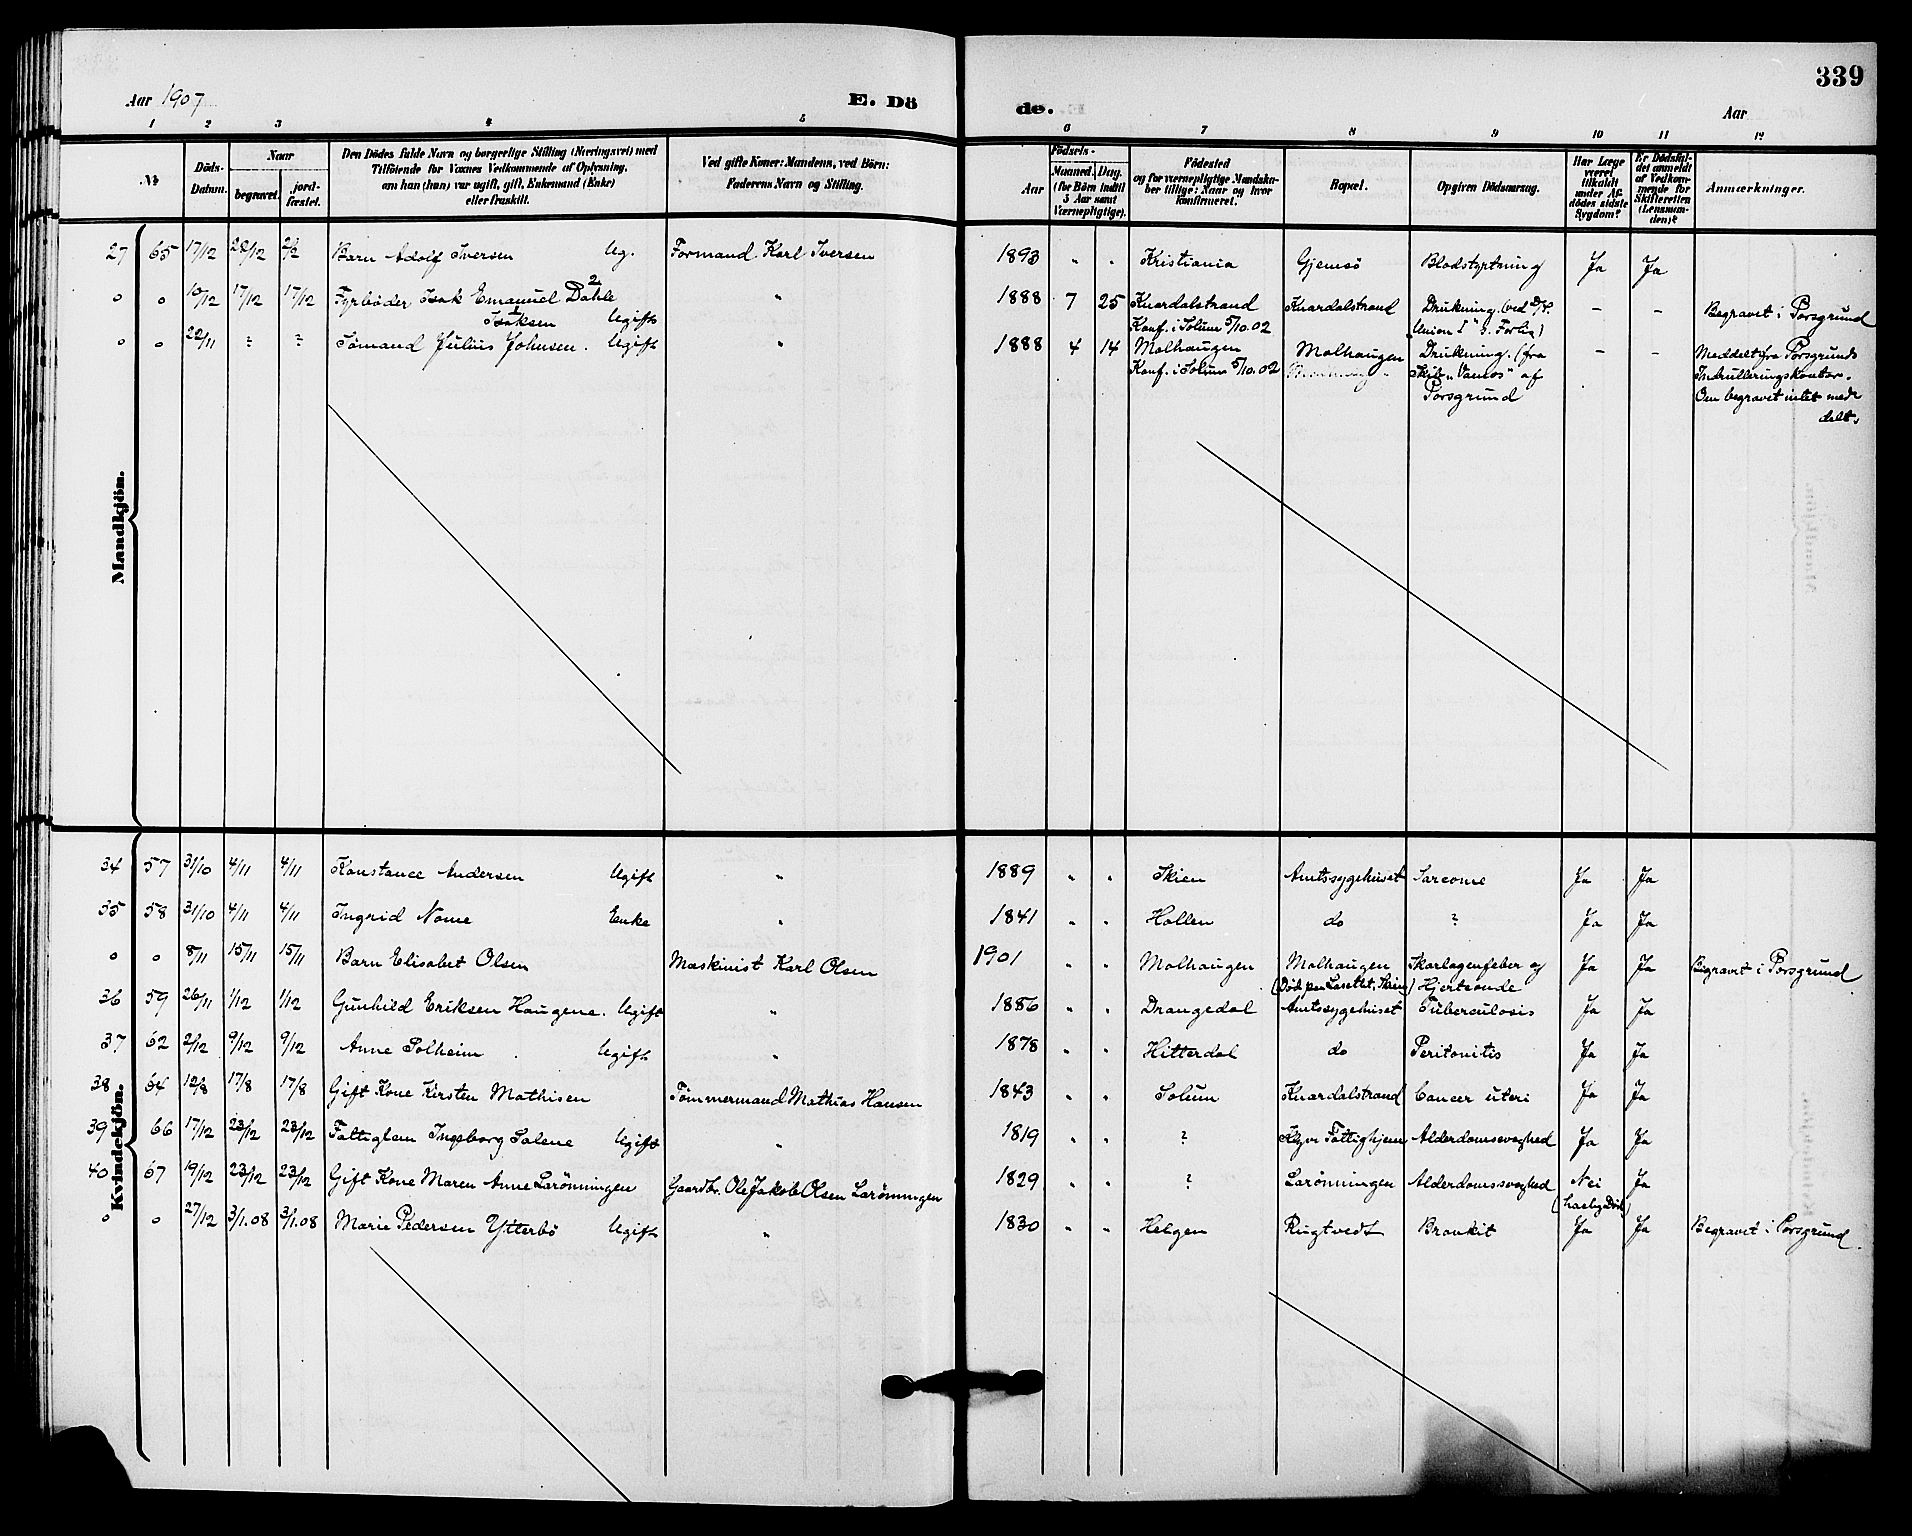 Aar 1907 E. Dö de. Aar 339
1 2 3 4 5 6 7 8 9 10 11 12
№ Döds-Datum. Naar begravet. jordfæstet. Den Dödes fulde Navn og borgerlige Stilling (Næringsvei) med Tilföiende for Voxnes Vedkommende af Oplysning, om han (hun) var ugift, gift, Enkemand (Enke) eller fraskilt. Ved gifte Koner: Mandens, ved Börn: Faderens Navn og Stilling. Födsels- Aar Maaned. Dag. (for Börn indtil 5 Aar samt Værnepligtige). Födested og for værnepligtige Mandskaber tillige: Naar og hvor konfirmeret. Bopæl. Opgiven Dödsaarsag. Har Læge været tilkaldt under Afdödes sidste Sygdom? Er Dödsfaldet anmeldt af Vedkommende for Skifteretten (Lensmanden)? Anmærkninger.
Mandkjön.
27 65 17/12 22/12 2/2 Barn Adolf Iversen ug. Formand Karl Iversen 1893 " " Kristiania Gjemsö Blodstyrtning Ja Ja
o o 10/12 17/12 17/12 Fyrböder Isak Emanuel Dahle " 1888 7 25 Knardalstrand Knardalstrand Drukning. (ved D/S. — — Begravet i Porsgrund
Isaksen Ugift Konf. i Solum 5/10.02 "Union I" s. Forlis)
o o 22/11 ? ? Sömand Julius Johnsen. Ugift " 1888 4 14 Molhaugen Molhaugen Drukning. (fra — — Meddelt fra Porsgrunds
Konf. i Solum 5/10.02 Skib "Vamos" af Indrulleringskontor.
Porsgrund Om begravet intet meddelt.
Kvindekjön.
34 57 31/10 4/11 4/11 Konstance Andersen Ugift " 1889 " " Skien Amtssygehuset Sarcome Ja Ja
35 58 31/10 4/11 4/11 Ingrid Nome Enke " 1841 " " Hollen do ? Ja Ja
o o 8/11 15/11 15/11 Barn Elisabet Olsen Maskinist Karl Olsen 1901 " " Molhaugen Molhaugen Skarlagenfeber og Ja Ja Begravet i Porsgrund
(Död paa Lasettet, Skien) Hjerteonde
36 59 26/11 1/12 1/12 Gunhild Eriksen Haugene. Ugift " 1886 " " Drangedal Amtssygehuset Tuberculosis Ja Ja
37 62 2/12 9/12 9/12 Anne Solheim Ugift " 1878 " " Hitterdal do Peritonitis Ja Ja
38 64 12/8 17/8 17/8 Gift Kone Kirsten Mathisen Tömmermand Mathias Hansen 1843 " " Solum Knardalstrand Cancer uteri Ja Ja
39 66 17/12 23/12 23/12 Fattiglem Ingeborg Solene Ugift " 1819 " " ? Fattighjem Alderdomssvaghed Ja Ja
40 67 19/12 23/12 23/12 Gift Kone Maren Anne Larönningen Gaardbr. Ole Jakob Olsen Larönningen 1829 " " ? Larönningen Alderdomssvaghed Nei Ja
(hastig Död)
o o 27/12 3/1.08 3/1.08 Marie Pedersen Ytterbö Ugift " 1830 " " Helgen Rugtvedt Bronkit Ja Ja Begravet i Porsgrund.